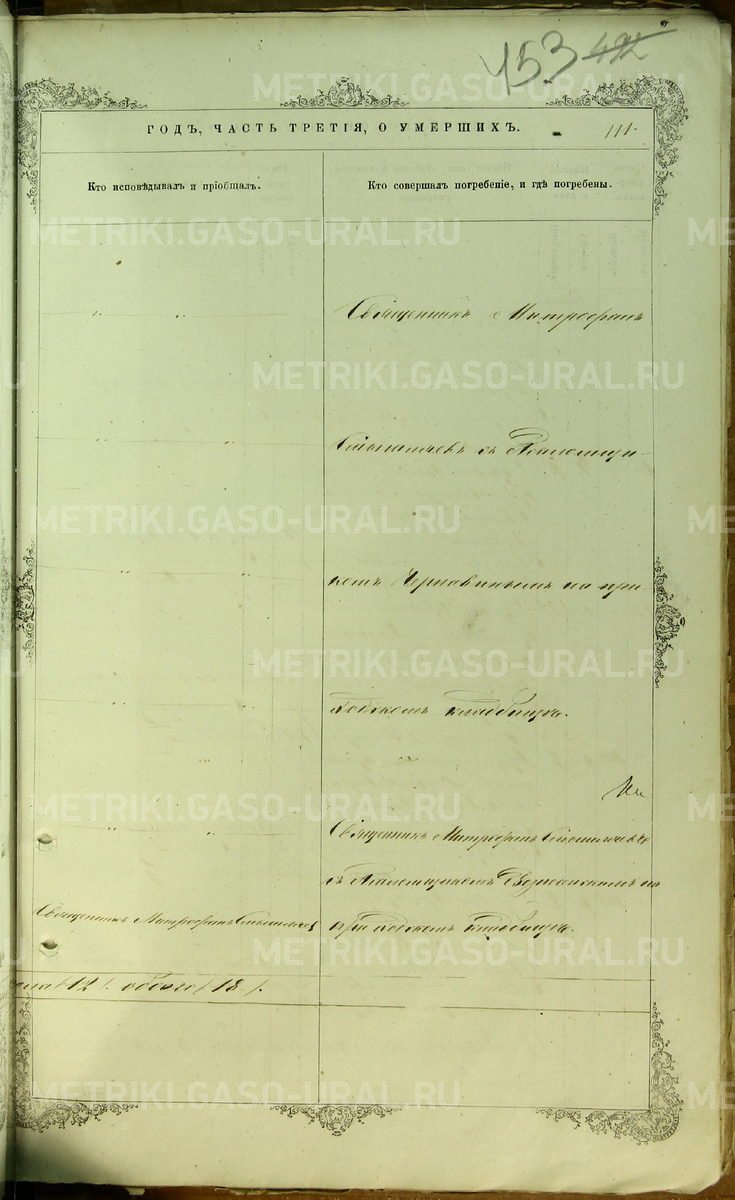 453 492
ГОДЪ, ЧАСТЬ ТРЕТІЯ, О УМЕРШИХЪ.
111.
Кто исповѣдывалъ и пріобщалъ.
Кто совершалъ погребеніе, и гдѣ погребены.
Священникъ Митрофанъ
съ Псаломщи-
комъ на при
ходскомъ кладбищѣ.
Священникъ Митрофанъ
съ Псаломщикомъ на
приходскомъ кладбищѣ.
Священникъ Митрофанъ
12 обоего 18
METRIKI.GASO-URAL.RU